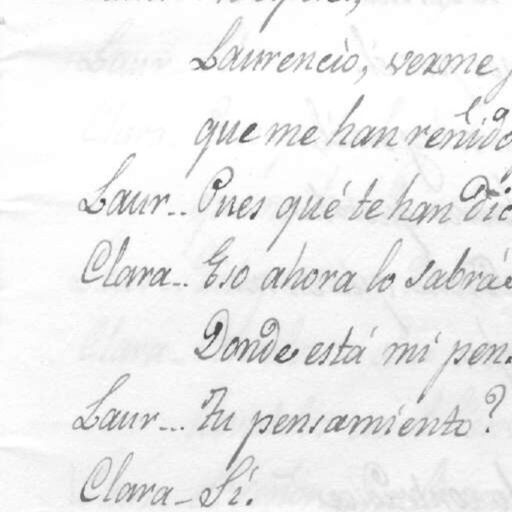 Laurencio, verme
que me han reñido
Laur.. Pues qué te han dic
Clara.. Eso ahora lo sabrás
Donde está mi pens
Laur... Tu pensamiento?
Clara - Sí.